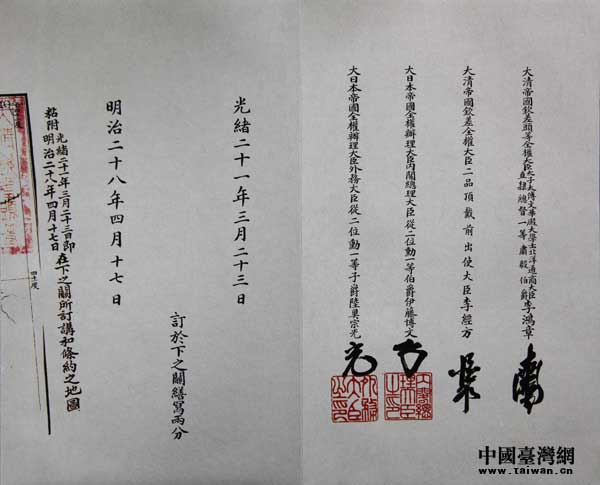 大清帝國欽差頭等全權大臣太子太傅文華殿大學士北洋通商大臣直隸總督一等肅毅伯爵李鴻章
大清帝國欽差全權大臣二品頂戴前出使大臣李經方
大日本帝國全權辦理大臣內閣總理大臣從二位勳一等伯爵伊藤博文
大日本帝國全權辦理大臣外務大臣從二位勳一等子爵陸奧宗光
光緒二十一年三月二十三日
訂於下之關繕寫兩分
明治二十八年四月十七日
粘附光緒二十一年三月二十三日即明治二十八年四月十七日在下之關所訂講和條約之地圖
中國臺灣網
www.taiwan.cn